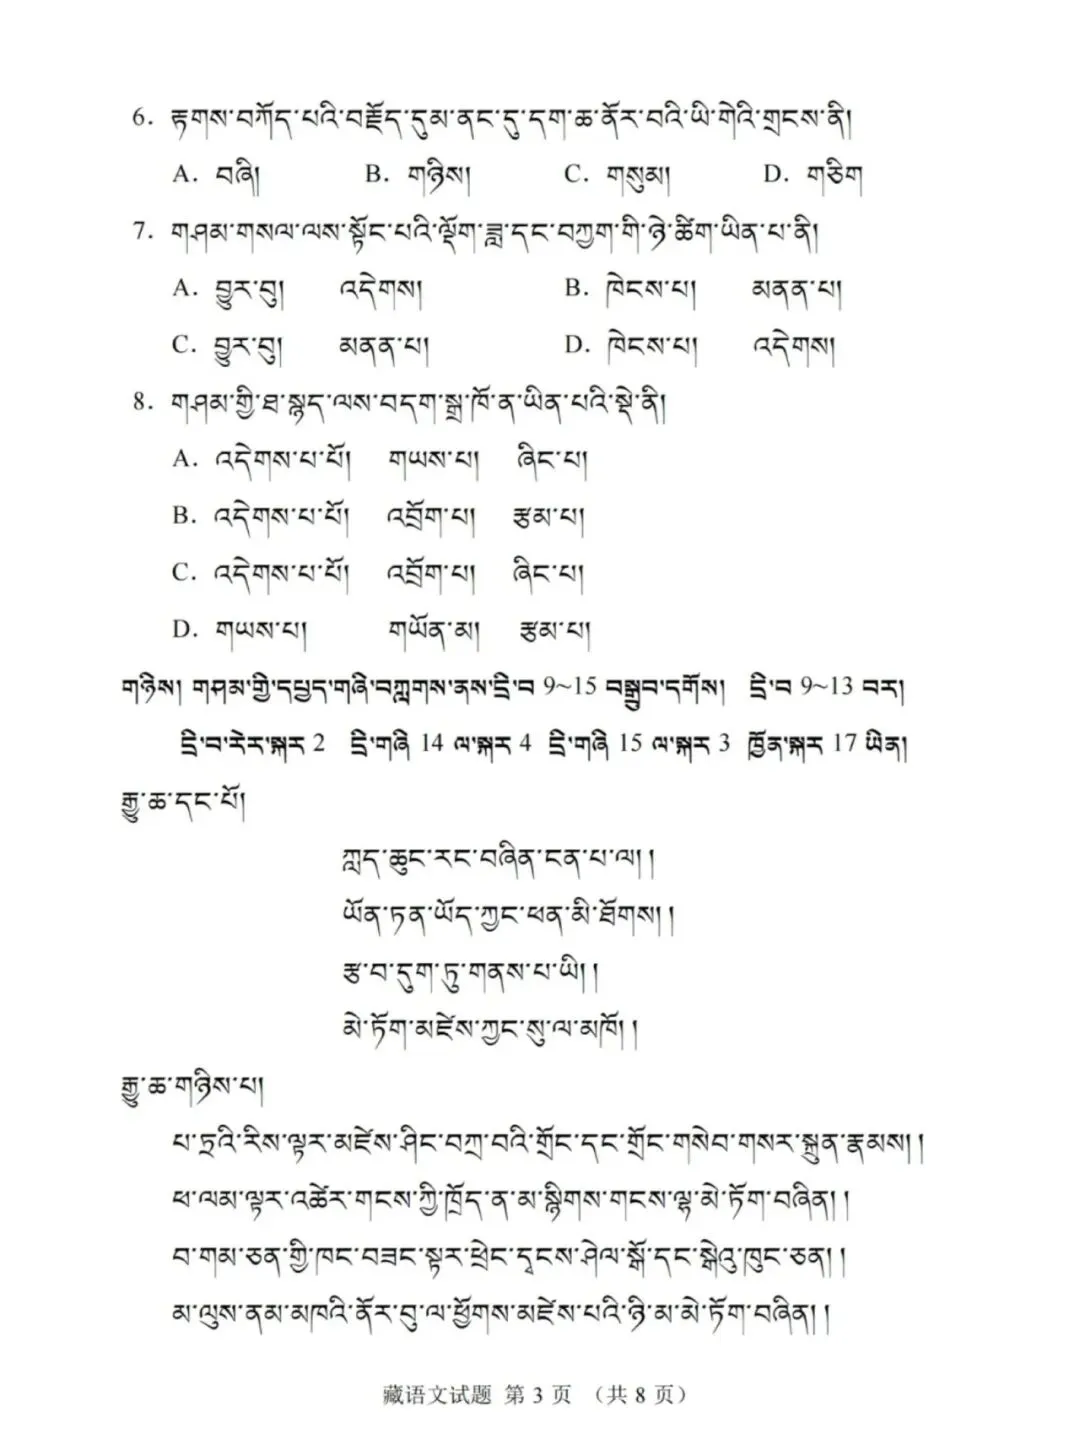 6. རྟགས་བཀོད་པའི་བརྗོད་དུམ་ནང་དུ་དག་ཆ་ནོར་བའི་ཡི་གེའི་གྲངས་ནི།
A. བཞི།  B. གཉིས།  C. གསུམ།  D. གཅིག
7. གཤམ་གསལ་ལས་སྟོང་པའི་ལྡོག་ཟླ་དང་བཀྱག་གི་ཉེ་ཚིག་ཡིན་པ་ནི།
A. བྱུར་བུ།  འདེགས།  B. ཁེངས་པ།  མནན་པ།
C. བྱུར་བུ།  མནན་པ།  D. ཁེངས་པ།  འདེགས།
8. གཤམ་གྱི་ཐ་སྙད་ལས་བདག་སྒྲ་ཁོ་ན་ཡིན་པའི་སྡེ་ནི།
A. འདེགས་པ་པོ།  གཡས་པ།  ཞིང་པ།
B. འདེགས་པ་པོ།  འབྲོག་པ།  རྩམ་པ།
C. འདེགས་པ་པོ།  འབྲོག་པ།  ཞིང་པ།
D. གཡས་པ།  གཡོན་མ།  རྩམ་པ།
གཉིས། གཤམ་གྱི་དཔྱད་གཞི་བཀླགས་ནས་དྲི་བ 9~15 བསྒྲུབ་དགོས། དྲི་བ 9~13 བར།
དྲི་བ་རེར་སྐར 2 དྲི་གཞི 14 ལ་སྐར 4 དྲི་གཞི 15 ལ་སྐར 3 ཁྱོན་སྐར 17 ཡིན།
རྒྱུ་ཆ་དང་པོ།
ཀླད་ཆུང་རང་བཞིན་ངན་པ་ལ། །
ཡོན་ཏན་ཡོད་ཀྱང་ཕན་མི་ཐོགས། །
རྩ་བ་དུག་ཏུ་གནས་པ་ཡི། །
མེ་ཏོག་མཛེས་ཀྱང་སུ་ལ་མཁོ། །
རྒྱུ་ཆ་གཉིས་པ།
པ་ཏྲའི་རིས་ལྟར་མཛེས་ཤིང་བཀྲ་བའི་གྲོང་དང་གྲོང་གསེབ་གསར་སྐྲུན་རྣམས། །
ཕ་ལམ་ལྟར་འཚེར་གངས་ཀྱི་ཁྲོད་ན་མ་སྙིགས་གངས་ལྷ་མེ་ཏོག་བཞིན། །
བ་གམ་ཅན་གྱི་ཁང་བཟང་སྟར་ཕྲེང་དྭངས་ཤེལ་སྒོ་དང་སྒེའུ་ཁུང་ཅན། །
མ་ལུས་ནམ་མཁའི་ནོར་བུ་ལ་ཕྱོགས་མཛེས་པའི་ཉི་མ་མེ་ཏོག་བཞིན། །
藏语文试题 第 3 页 （共 8 页）